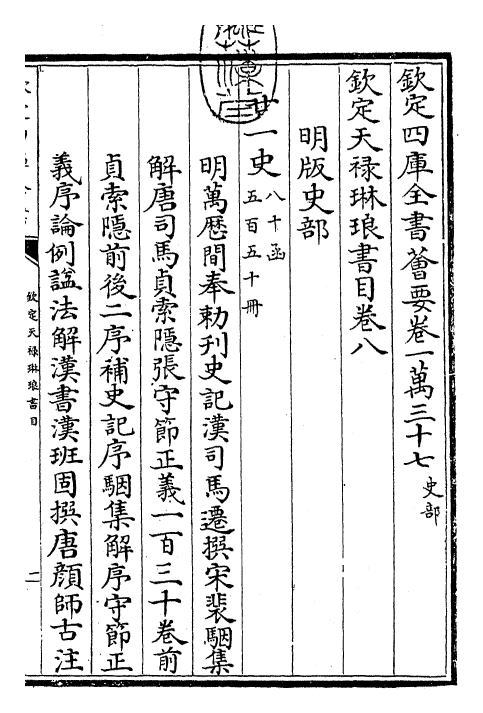 欽定四庫全書薈要卷一萬三千十七 史部
欽定天祿琳琅書目卷八
明版史部
廿一史 八十函 五百五十冊
明萬歷間奉勅刊史記漢司馬遷撰宋裴駰集
解唐司馬貞索隱張守節正義一百三十卷前
貞索隱前後二序補史記序駰集解序守節正
義序論例諡法解漢書漢班固撰唐顔師古注
欽定天祿琳琅書目
二